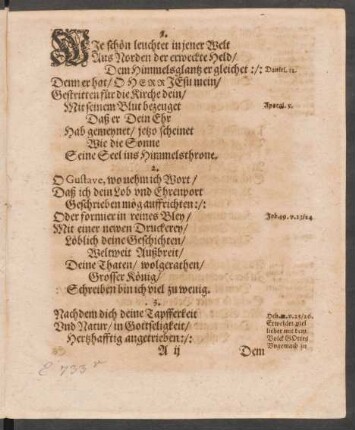 1.
WJe schön leuchtet in jener Welt
Aus Norden der erweckte Held/
Dem Himmelsglantz er gleichet :/: Daniel. 12.
Denn er hat/ O HERR JEsu mein/
Gestritten für die Kirche dein/
Mit seinem Blut bezeuget Apocal. v.
Daß er Dein Ehr
Hab gemeynet/ jetzo scheinet
Wie die Sonne
Seine Seel ins Himmelsthrone.
2.
O Gustave, wo nehm ich Wort/
Daß ich dein Lob vnd Ehrenport
Geschrieben mög auffrichten :/:
Oder formier in reines Bley/ Job. 19. v. 23/24
Mit einer newen Druckerey/
Löblich deine Geschichten/
Weltweit Außbreit/
Deine Thaten/ wolgerathen/
Grosser König/
Schreiben bin ich viel zu wenig.
3.
Nachdem dich deine Tapfferkeit
Vnd Natur/ in Gottseligkeit/
Hertzhafftig angetrieben :/:
Erwehlet viel
lieber mit dem
Volck GOttes
Vngemach zu
A ij Dem
E 733